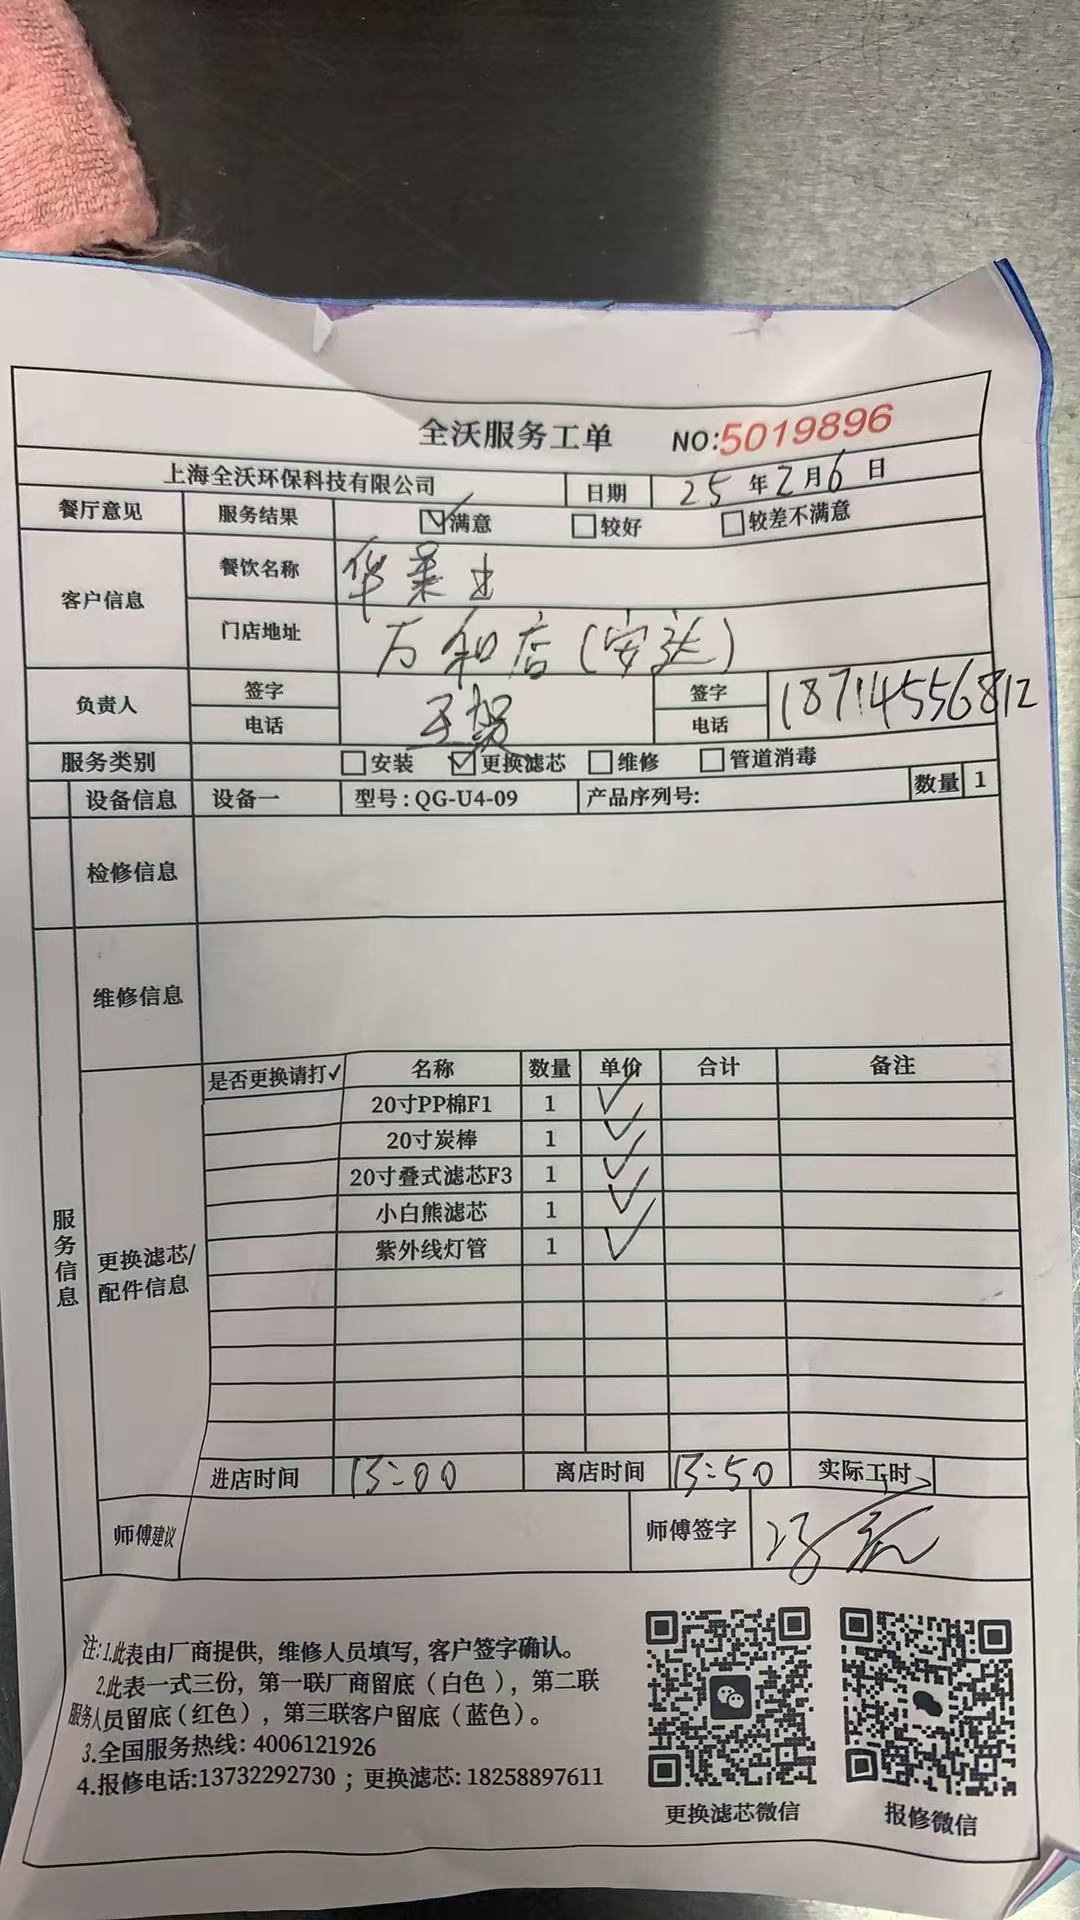 全沃服务工单 NO:5019896
上海全沃环保科技有限公司 日期 25年2月6日
餐厅意见 服务结果 ☑满意 □较好 □较差不满意
客户信息 餐饮名称 华莱士
门店地址 万和店(安达)
负责人 签字 签字 18714556812
电话 电话
服务类别 □安装 ☑更换滤芯 □维修 □管道消毒
设备信息 设备一 型号:QG-U4-09 产品序列号: 数量 1
检修信息
维修信息
是否更换请打✓ 名称 数量 单价 合计 备注
20寸PP棉F1 1 ✓
20寸炭棒 1 ✓
20寸叠式滤芯F3 1 ✓
小白熊滤芯 1 ✓
紫外线灯管 1 ✓
服务信息
更换滤芯/
配件信息
进店时间 13:00 离店时间 13:50 实际工时
师傅建议 师傅签字
注:1.此表由厂商提供,维修人员填写,客户签字确认。
2.此表一式三份,第一联厂商留底(白色),第二联
服务人员留底(红色),第三联客户留底(蓝色)。
3.全国服务热线:4006121926
4.报修电话:13732292730;更换滤芯:18258897611
更换滤芯微信 报修微信